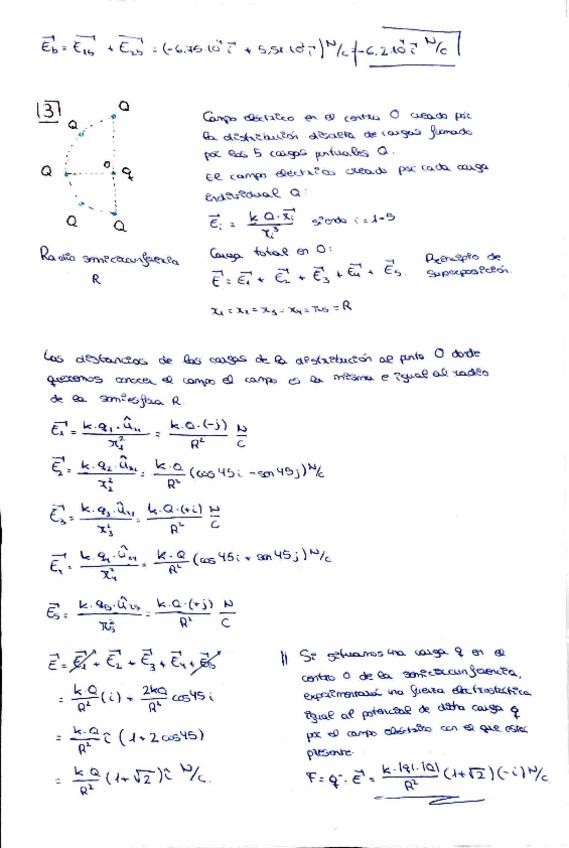 E⃗b = E⃗1b + E⃗2b = (-6.75·10⁴ i⃗ + 5,51·10³ i⃗) N/C = -6.2·10⁴ i⃗ N/C
3
Q
Q
Q
O
q
Q
Q
Radio semicircunferencia
R
Campo eléctrico en el centro O creado por
la distribución discreta de cargas formado
por las 5 cargas puntuales Q.
El campo eléctrico creado por cada carga
individual Q:
E⃗i = k Q·x⃗i / xi³ siendo i = 1-5
Carga total en O:
E⃗ = E⃗1 + E⃗2 + E⃗3 + E⃗4 + E⃗5 Principio de superposición.
x1 = x2 = x3 = x4 = x5 = R
Las distancias de las cargas de la distribución al punto O donde
queremos conocer el campo el campo es la misma e igual al radio
de la semiesfera R.
E⃗1 = k·q1·û / x1² = k·Q·(-j) / R² N/C
E⃗2 = k·q2·û / x2² = k·Q / R² (cos 45i - sen 45j) N/C
E⃗3 = k·q3·û / x3² = k·Q·(+i) / R² N/C
E⃗4 = k·q4·û / x4² = k·Q / R² (cos 45i + sen 45j) N/C
E⃗5 = k·q5·û / x5² = k·Q·(+j) / R² N/C
E⃗ = E⃗1 + E⃗2 + E⃗3 + E⃗4 + E⃗5
= k·Q / R² (i) + 2kQ / R² cos45 i
= k·Q / R² i (1 + 2cos45)
= k·Q / R² (1 + √2) i N/C.
// Si situamos una carga q en el
centro O de la semicircunferencia,
experimentará una fuerza electrostática
igual al potencial de dicha carga q
por el campo eléctrico con el que está
presente.
F = q⁻·E⃗ = k·|q|·|Q| / R² (1+√2)(-i) N/C.